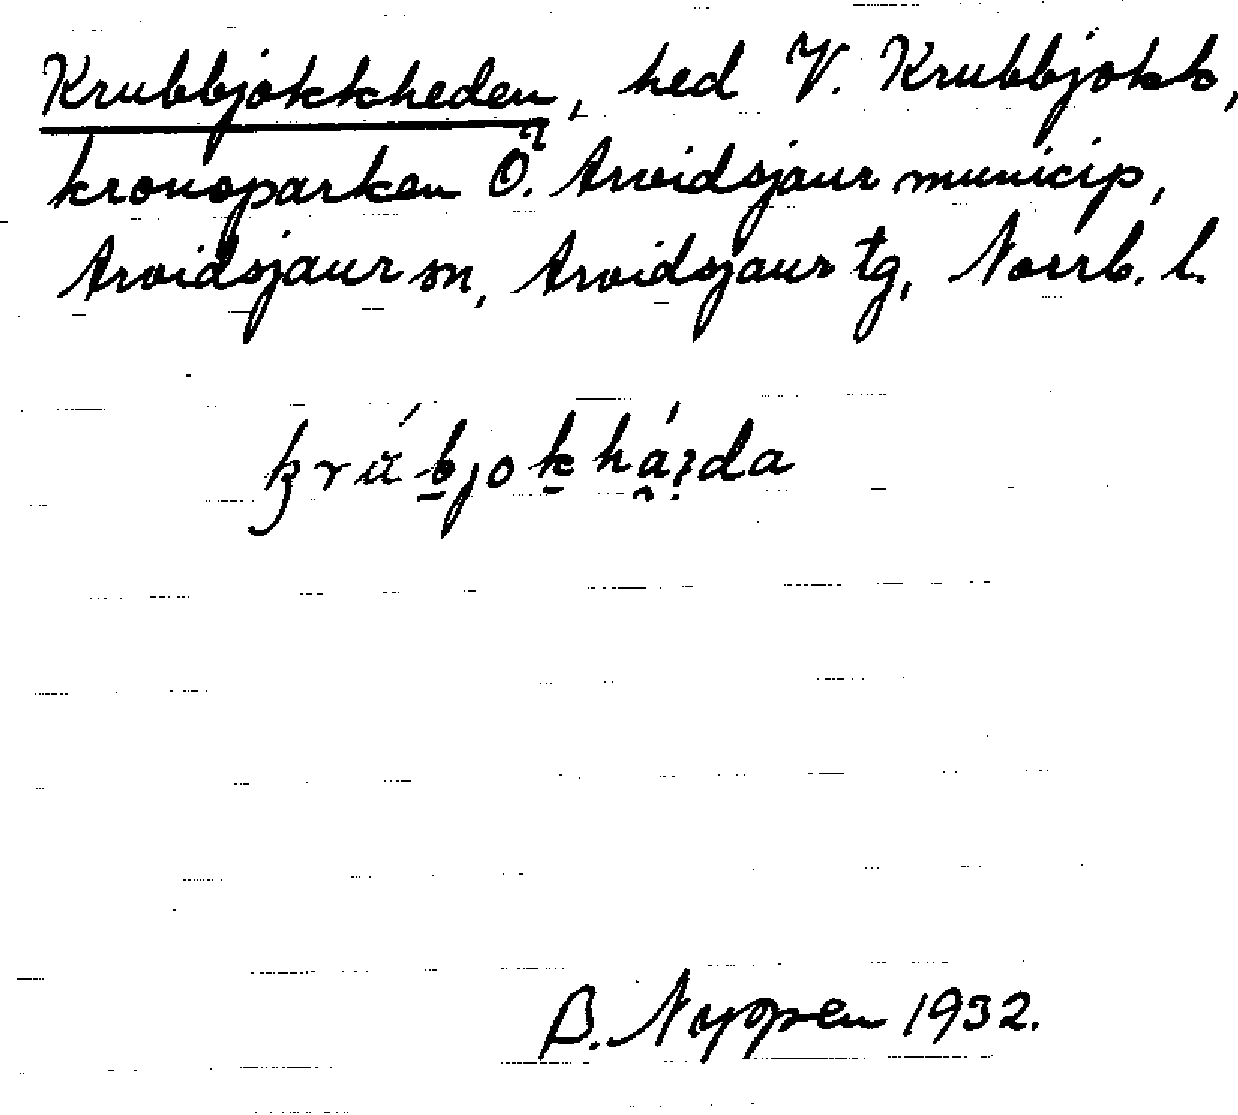 Krubbjokkheden, hed V. Krubbjokk,
kronoparken Ö. Arvidsjaur municip,
Arvidsjaur sn, Arvidsjaur tg, Norrb. l.
B. Nyppen 1932.